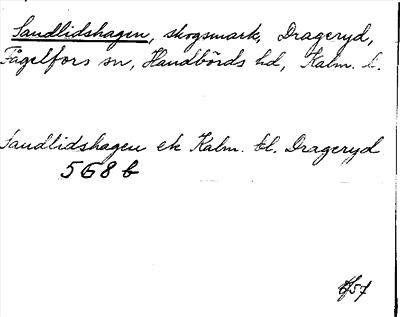 Sandlidshagen, skogsmark, Drageryd,
Fågelfors sn, Handbörds hd, Kalm. l.
Sandlidshagen ek Kalm. bl. Drageryd
568 b